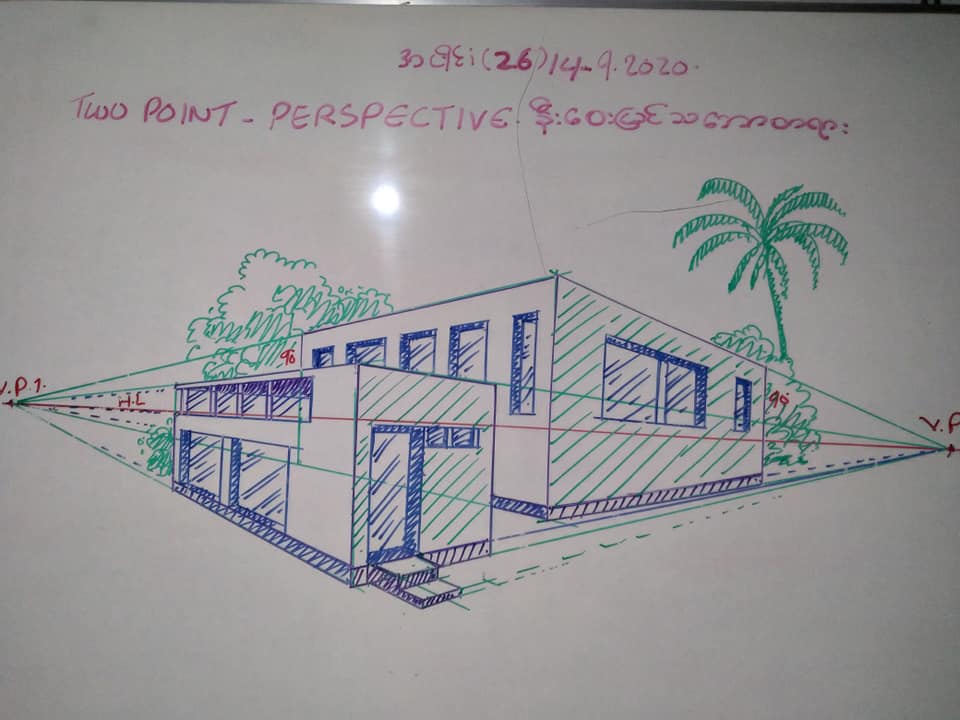 အပိုင်း(26)14-9.2020.
TWO POINT - PERSPECTIVE. နီးဝေးမြင်သဘောတရား
V.P 1.
H.L
90
90
V.P